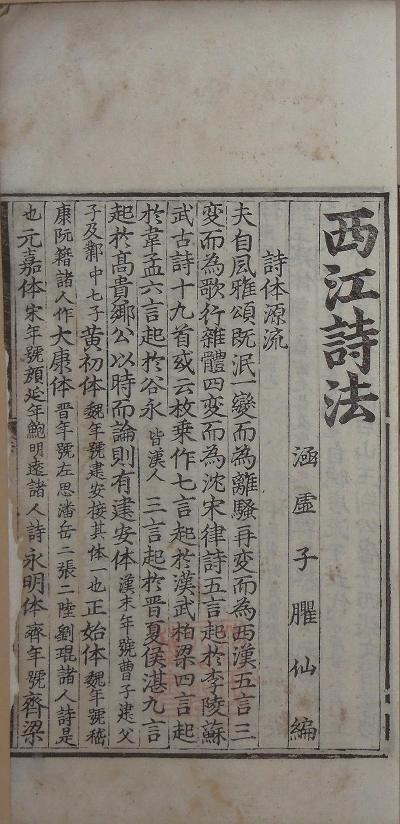 西江詩法
涵虛子臞仙編
詩体源流
夫自風雅頌既泯一變而為離騷再变而為西漢五言三
变而為歌行雜體四变而為沈宋律詩五言起於李陵蘇
武古詩十九首或云枚乗作七言起於漢武柏梁四言起
於韋孟六言起於谷永皆漢人三言起於晋夏侯湛九言
起於髙貴鄉公以時而論則有建安体漢末年號曹子建父
子及鄴中七子黄初体魏年號建安接其体一也正始体魏年號嵇
康阮籍諸人作大康体晋年號左思潘岳二張二陸劉琨諸人詩是
也元嘉体宋年號顔延年鮑明逺諸人詩永明体齊年號齊梁